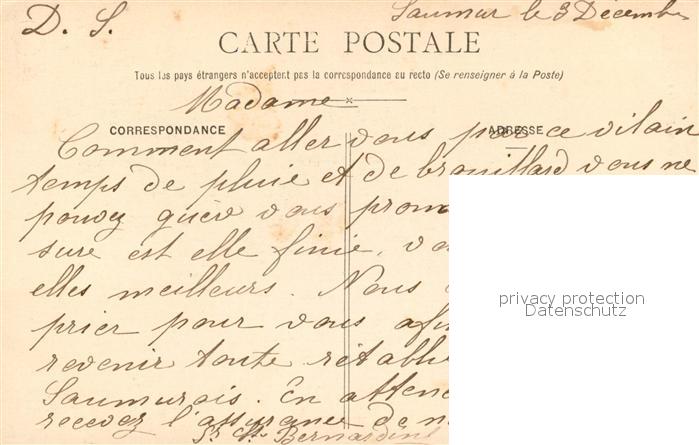 D. S.
Saumur le 3 Décembre
CARTE POSTALE
Tous les pays étrangers n'acceptent pas la correspondance au recto (Se renseigner à la Poste)
Madame
CORRESPONDANCE
ADRESSE
Comment aller vous par ce vilain
temps de pluie et de brouillard vous ne
pouvez guère vous prom
sure est elle finie, vo
elles meilleurs. Nous
prier pour vous afin
revenir toute rétabli
Saumurois. En atten
recevez l'assurance de n
Sr St Bernardin
privacy protection
Datenschutz